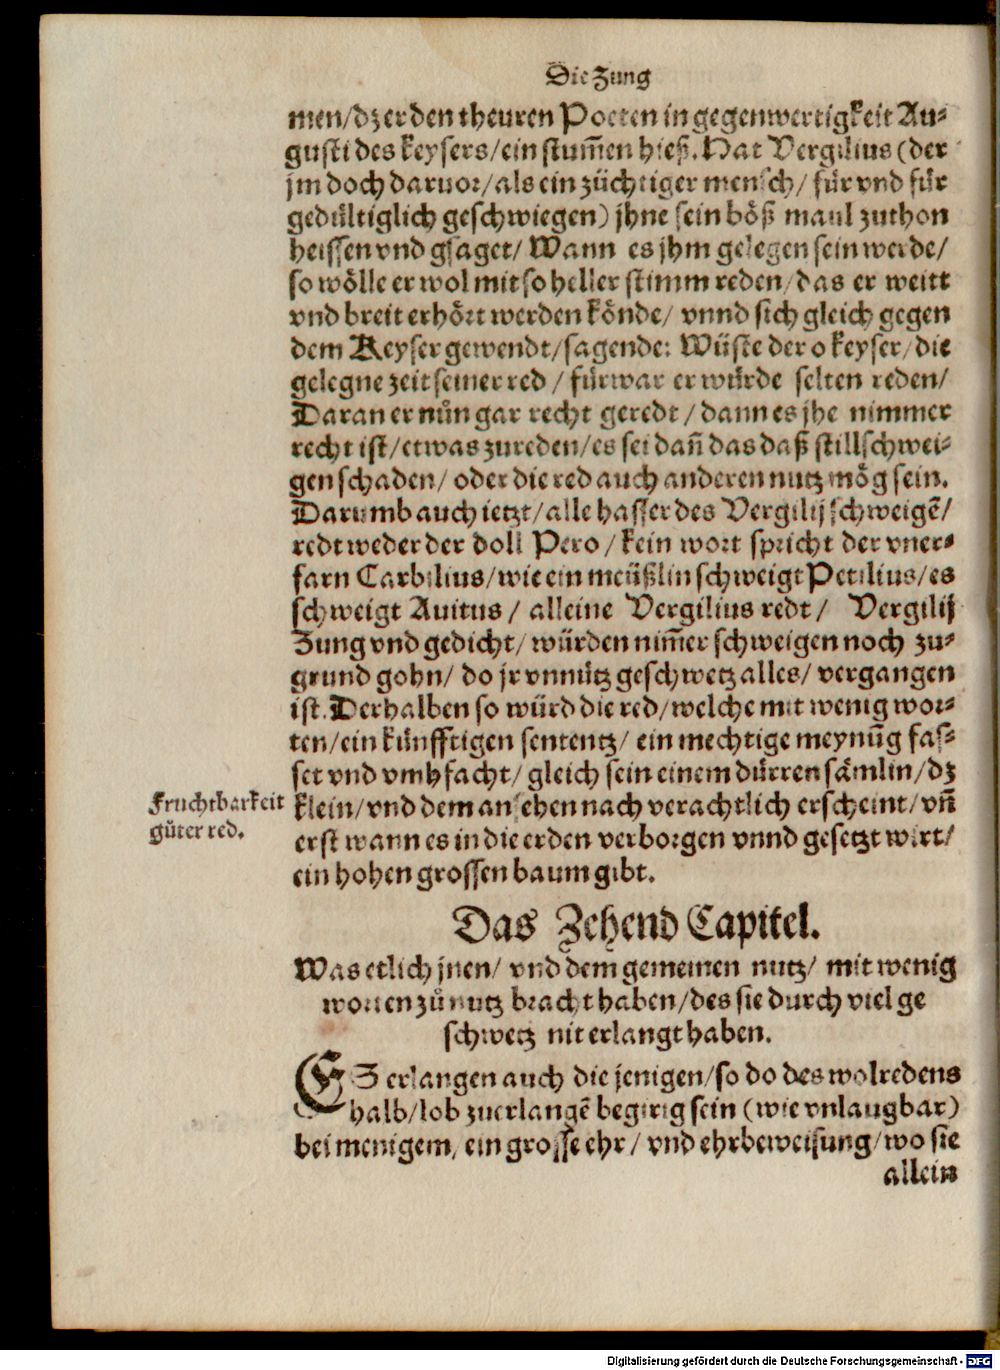 Die Zung
men/dz er den theuren Poeten in gegenwertigkeit Au⸗
gusti des keysers/ein stum̃en hieß. Hat Vergilius (der
jm doch daruor/als ein züchtiger mensch/ für vnd für
gedültiglich geschwiegen) jhne sein böß maul zuthon
heissen vnd gsaget/ Wann es jhm gelegen sein werde/
so wölle er wol mit so heller stimm reden/das er weitt
vnd breit erhört werden könde/ vnnd sich gleich gegen
dem Keyser gewendt/sagende: Wüste der o keyser/die
gelegne zeit seiner red / fürwar er würde selten reden/
Daran er nůn gar recht geredt / dann es jhe nimmer
recht ist/etwas zureden/es sei dañ das daß stillschwei⸗
gen schaden/ oder die red auch anderen nutz mög sein.
Darumb auch ietzt/alle hasser des Vergilij schweigẽ/
redt weder der doll Pero / kein wort spricht der vner⸗
farn Carbilius/wie ein meüßlin schweigt Petilius/es
schweigt Auitus / alleine Vergilius redt / Vergilij
Zung vnd gedicht/ würden nim̃er schweigen noch zu⸗
grund gohn/ do jr vnnütz geschwetz alles/ vergangen
ist. Derhalben so würd die red/welche mit wenig wor⸗
ten/ein künfftigen sententz/ ein mechtige meynũg fas⸗
set vnd vmbfacht/ gleich sein einem dürren sämlin/dz
klein/vnd dem ansehen nach verachtlich erscheint/vñ
erst wann es in die erden verborgen vnnd gesetzt wirt/
ein hohen grossen baum gibt.
Fruchtbarkeit
güter red.
Das Zehend Capitel.
Was etlich jnen/ vnd dem gemeinen nutz/ mit wenig
worten zů nutz bracht haben/des sie durch viel ge
schwetz nit erlangt haben.
ES erlangen auch die jenigen/so do des wolredens
halb/lob zuerlangẽ begirig sein (wie vnlaugbar)
bei menigem/ ein grosse ehr/ vnd ehrbeweisung/wo sie
allein
Digitalisierung gefördert durch die Deutsche Forschungsgemeinschaft - DFG